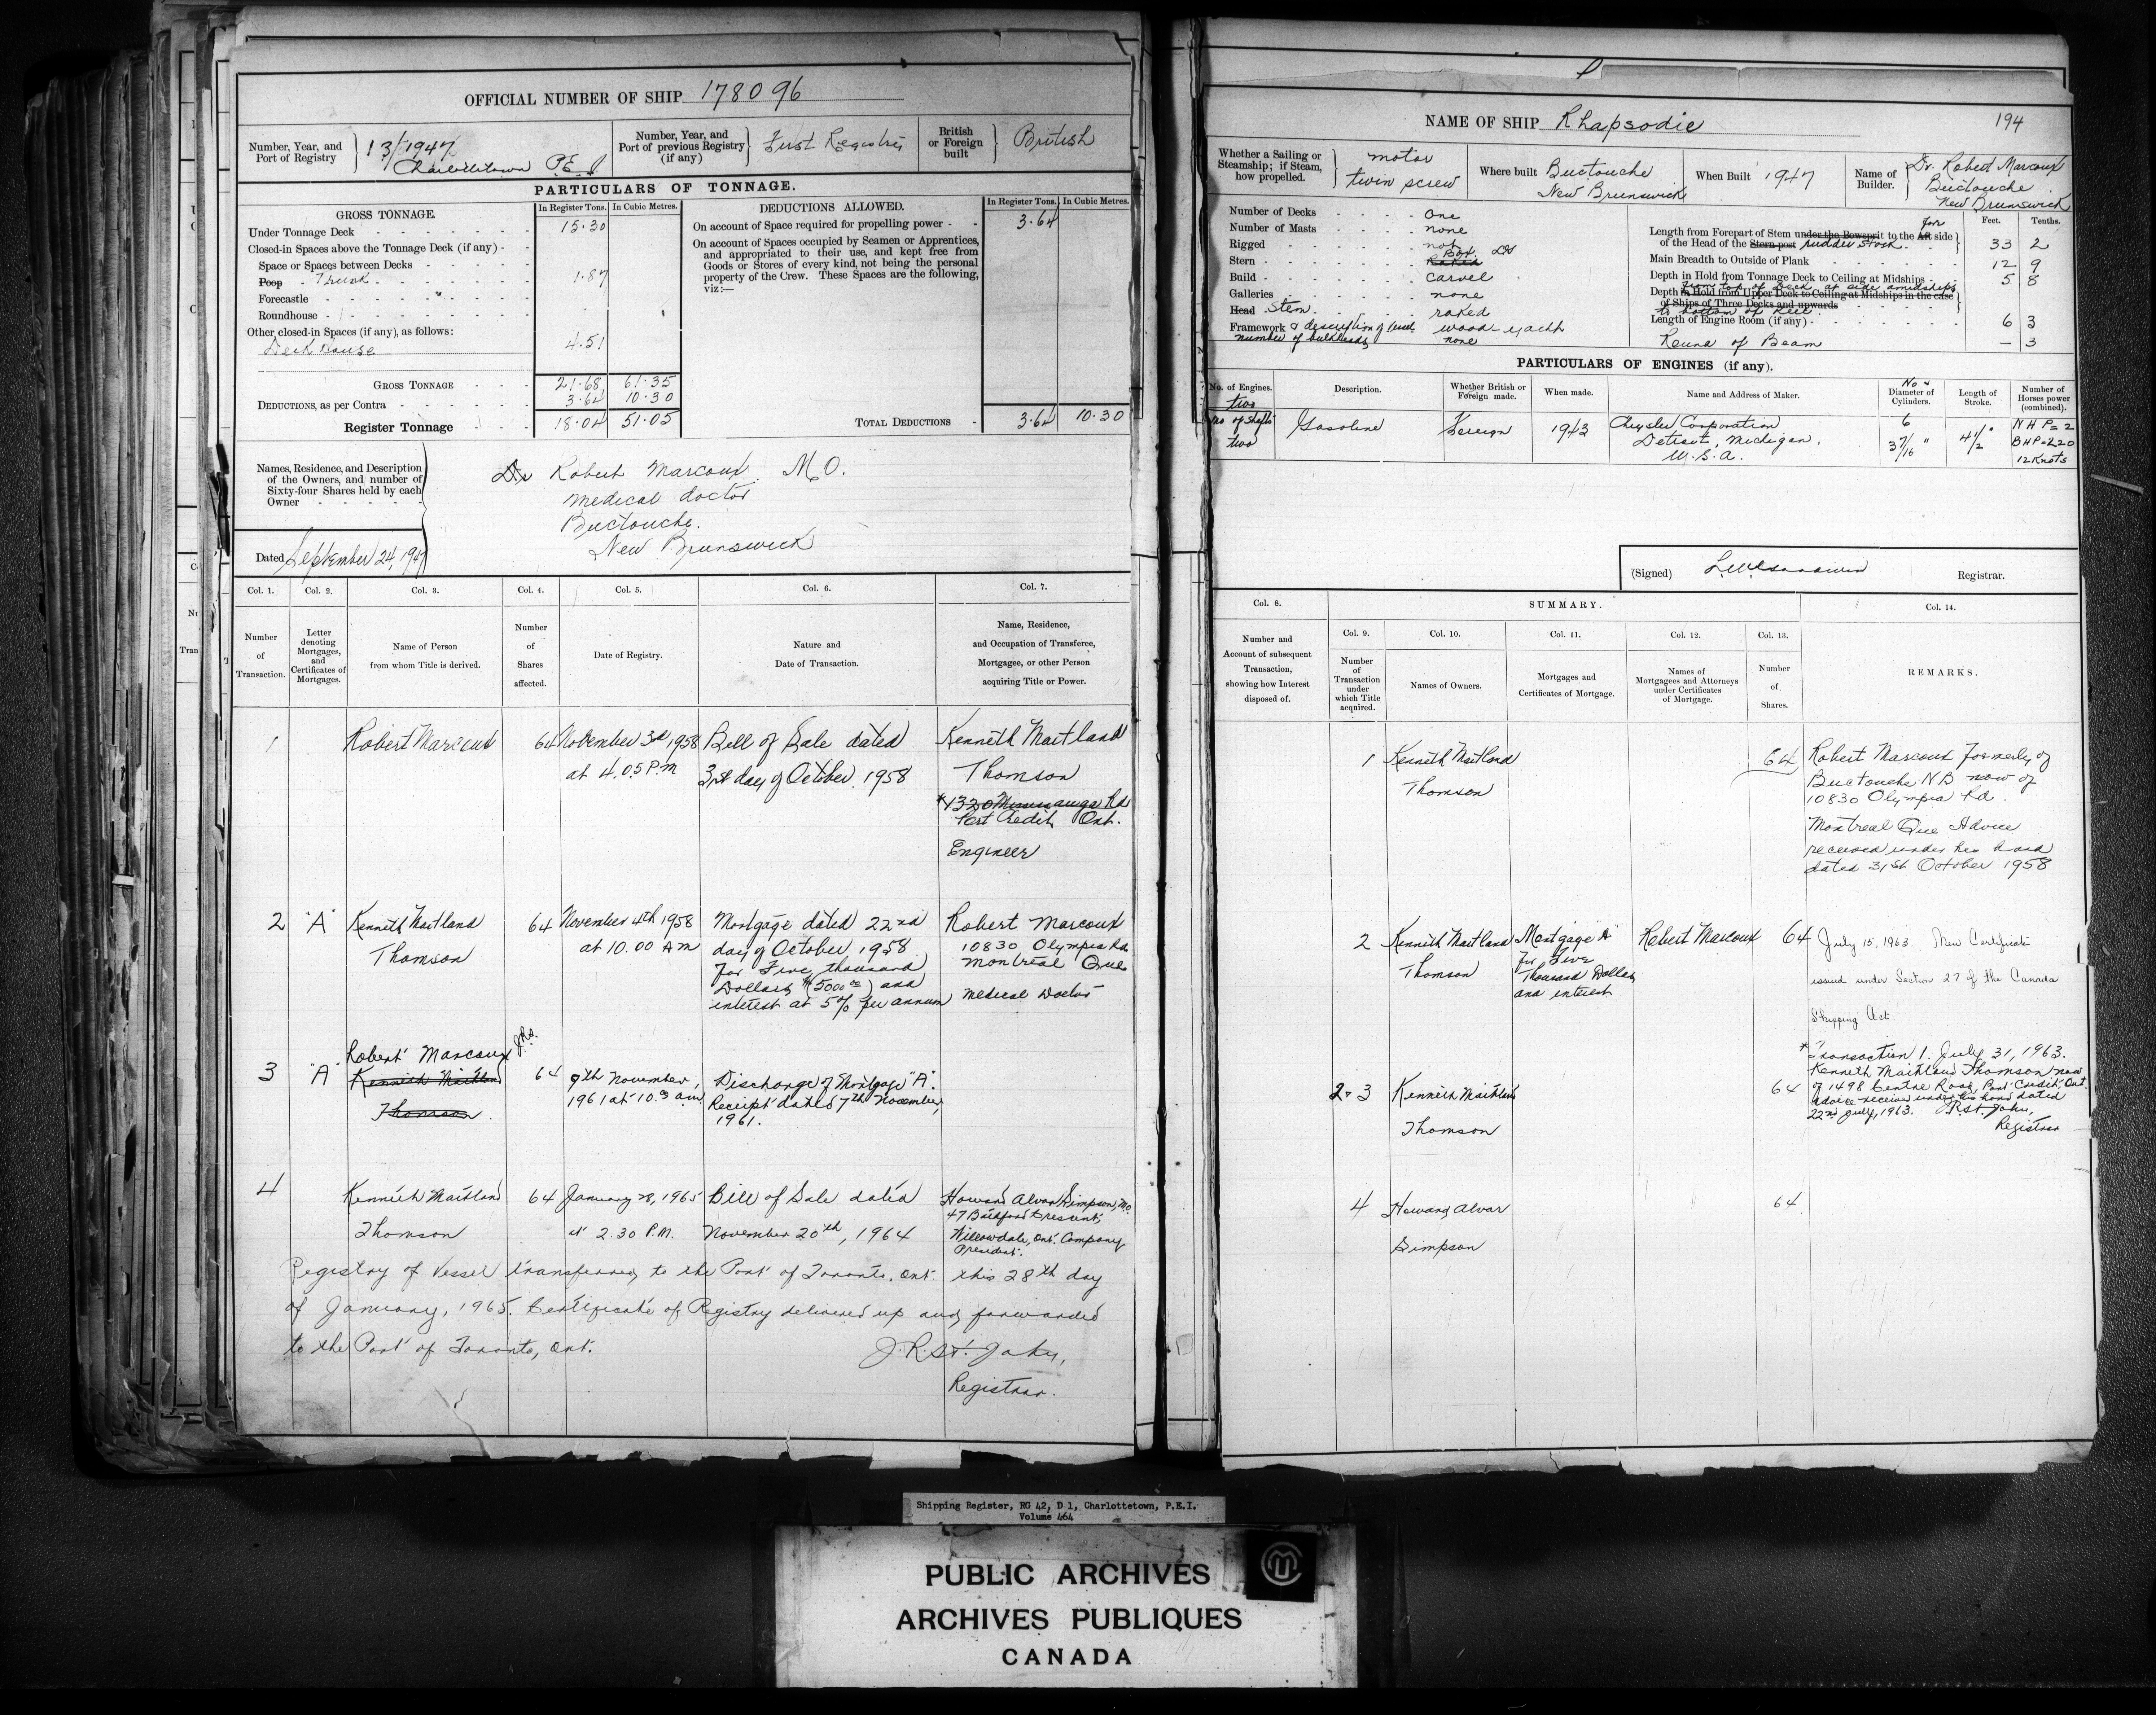 OFFICIAL NUMBER OF SHIP 178096
Number, Year, and
Port of Registry
13/1947
Charlottetown P.E.I
Number, Year, and
Port of previous Registry
(if any)
First Registry
British
or Foreign
built
British
PARTICULARS OF TONNAGE.
GROSS TONNAGE.
In Register Tons. In Cubic Metres.
DEDUCTIONS ALLOWED.
In Register Tons. In Cubic Metres.
Under Tonnage Deck 15.30
Closed-in Spaces above the Tonnage Deck (if any)
Space or Spaces between Decks
Poop Trunk 1.87
Forecastle
Roundhouse
Other closed-in Spaces (if any), as follows:
Deck House 4.51
GROSS TONNAGE 21.68 61.35
DEDUCTIONS, as per Contra 3.64 10.30
Register Tonnage 18.04 51.05
On account of Space required for propelling power 3.64
On account of Spaces occupied by Seamen or Apprentices,
and appropriated to their use, and kept free from
Goods or Stores of every kind, not being the personal
property of the Crew. These Spaces are the following,
viz:—
TOTAL DEDUCTIONS 3.64 10.30
Names, Residence, and Description
of the Owners, and number of
Sixty-four Shares held by each
Owner
Dr Robert Marcoux M.D.
medical doctor
Buctouche.
New Brunswick
Dated September 24, 1947
Col. 1. Col. 2. Col. 3. Col. 4. Col. 5. Col. 6. Col. 7.
Number
of
Transaction.
Letter
denoting
Mortgages,
and
Certificates of
Mortgages.
Name of Person
from whom Title is derived.
Number
of
Shares
affected.
Date of Registry.
Nature and
Date of Transaction.
Name, Residence,
and Occupation of Transferee,
Mortgagee, or other Person
acquiring Title or Power.
1 Robert Marcoux 64 November 3rd 1958
at 4.05 P.m
Bill of Sale dated
31st day of October 1958
Kenneth Maitland
Thomson
*1320 Mississauga Rd
Port Credit Ont.
Engineer
2 "A" Kenneth Maitland
Thomson
64 November 4th 1958
at 10.00 A m
Mortgage dated 22nd
day of October 1958
for Five thousand
Dollars ($5000.00) and
interest at 5% per annum
Robert Marcoux
10830 Olympia Rd
Montreal Que
Medical Doctor
3 "A" Robert Marcoux
Kenneth Maitland
Thomson.
64 9th November,
1961 at 10.00 a.m.
Discharge of Mortgage "A".
Receipt dated 7th November,
1961.
4 Kenneth Maitland
Thomson
64 January 28, 1965
at 2.30 P.M.
Bill of Sale dated
November 20th, 1964
Howard Alvar Simpson,
Willowdale, Ont. Company
President.
Registry of Vessel transferred to the Port of Toronto, Ont. this 28th day
of January, 1965. Certificate of Registry delivered up and forwarded
to the Port of Toronto, Ont.
J.R. St. John,
Registrar.
NAME OF SHIP Rhapsodie
194
Whether a Sailing or
Steamship; if Steam,
how propelled.
motor
twin screw
Where built Buctouche
New Brunswick
When Built 1947
Name of
Builder.
Dr. Robert Marcoux
Buctouche
New Brunswick
Number of Decks One
Number of Masts none
Rigged not
Stern Box.
Build Carvel
Galleries none
Head Stem raked
Framework & description of vessel wood - yacht
number of bulkheads none
Feet. Tenths.
Length from Forepart of Stem under the Bowsprit to the Aft for side
of the Head of the Stern-post rudder stock. 33 2
Main Breadth to Outside of Plank 12 9
Depth in Hold from Tonnage Deck to Ceiling at Midships 5 8
Depth in Hold from Upper Deck to Ceiling at Midships in the case
of Ships of Three Decks and upwards
from top of Deck at side amidships
to bottom of keel
Length of Engine Room (if any) 6 3
Round of Beam — 3
PARTICULARS OF ENGINES (if any).
No. of Engines.
two
no of shafts
two
Description.
Gasoline
Whether British or
Foreign made.
Foreign
When made.
1943
Name and Address of Maker.
Chrysler Corporation
Detroit, Michigan.
U.S.A.
No &
Diameter of
Cylinders.
6
3 7/16 "
Length of
Stroke.
4 1/2 "
Number of
Horses power
(combined).
N H P = 2
B H P = 220
12 Knots
(Signed)
Registrar.
Col. 8. SUMMARY. Col. 14.
Number and
Account of subsequent
Transaction,
showing how Interest
disposed of.
Col. 9. Col. 10. Col. 11. Col. 12. Col. 13.
Number
of
Transaction
under
which Title
acquired.
Names of Owners.
Mortgages and
Certificates of Mortgage.
Names of
Mortgagees and Attorneys
under Certificates
of Mortgage.
Number
of
Shares.
REMARKS.
1 Kenneth Maitland
Thomson
64
Robert Marcoux formerly of
Buctouche N B now of
10830 Olympia Rd.
Montreal Que Advice
received under his hand
dated 31st October 1958
2 Kenneth Maitland
Thomson
Mortgage A
for Five
Thousand Dollars
and interest
Robert Marcoux 64
July 15, 1963. New Certificate
issued under Section 27 of the Canada
Shipping Act
* Transaction 1. July 31, 1963.
Kenneth Maitland Thomson now
of 1498 Centre Road, Port Credit, Ont.
Advice received under his hand dated
22nd July, 1963. J.R. St. John,
Registrar
2 & 3 Kenneth Maitland
Thomson
64
4 Howard Alvar
Simpson
64
Shipping Register, RG 42, D 1, Charlottetown, P.E.I.
Volume 464
PUBLIC ARCHIVES
ARCHIVES PUBLIQUES
CANADA